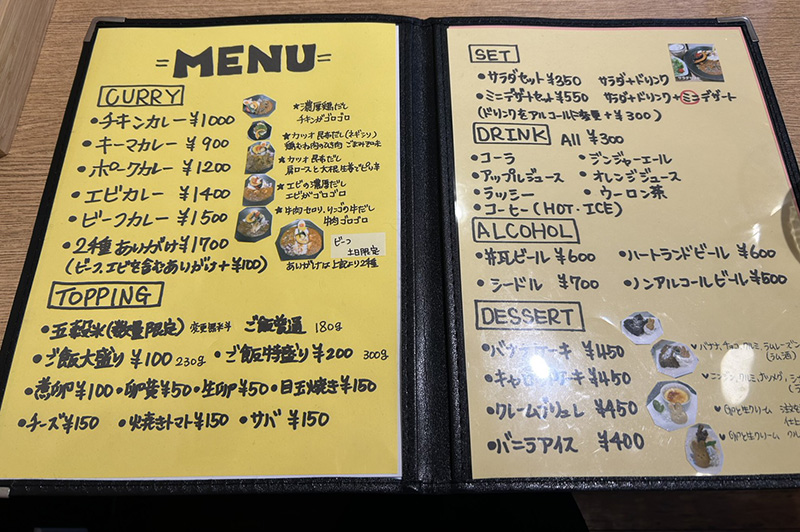 =MENU=
CURRY
・チキンカレー ¥1000
★濃厚鶏だし
チキンがゴロゴロ
・キーマカレー ¥900
★カツオ昆布だし(ネギシソ)
鶏むね肉のひき肉 ごまみそ味
・ポークカレー ¥1200
★カツオ昆布だし
肩ロースと大根
・エビカレー ¥1400
★エビの濃厚だし
エビがゴロゴロ
・ビーフカレー ¥1500
★牛肉・セロリ、りんごの牛だし
牛肉ゴロゴロ
・2種あいがけ ¥1700
(ビーフ、エビを含むあいがけ +¥100)
ビーフ
土日限定
あいがけは上記より2種
TOPPING
・五穀米(数量限定) 変更無料 ご飯普通 180g
・ご飯大盛り ¥100 230g ・ご飯特盛り ¥200 300g
・煮卵 ¥100 ・卵黄 ¥50 ・生卵 ¥50 ・目玉焼き ¥150
・チーズ ¥150 ・焼きトマト ¥150 ・サバ ¥150
SET
・サラダセット ¥350 サラダ+ドリンク
・ミニデザートセット ¥550 サラダ+ドリンク+ミニデザート
(ドリンクをアルコールに変更 +¥300)
DRINK All ¥300
・コーラ ・ジンジャーエール
・アップルジュース ・オレンジジュース
・ラッシー ・ウーロン茶
・コーヒー(HOT・ICE)
ALCOHOL
・瓶ビール ¥600 ・ハートランドビール ¥600
・シードル ¥700 ・ノンアルコールビール ¥500
DESSERT
・バナナケーキ ¥450
♥バナナ、チョコ、クルミ、ラムレーズン
(ラム酒)
・キャロットケーキ ¥450
♥ニンジン、クルミ、ナツメグ、シ
・クレームブリュレ ¥450
♥卵と生クリーム 注文
仕上
・バニラアイス ¥400
♥卵と生クリーム クル